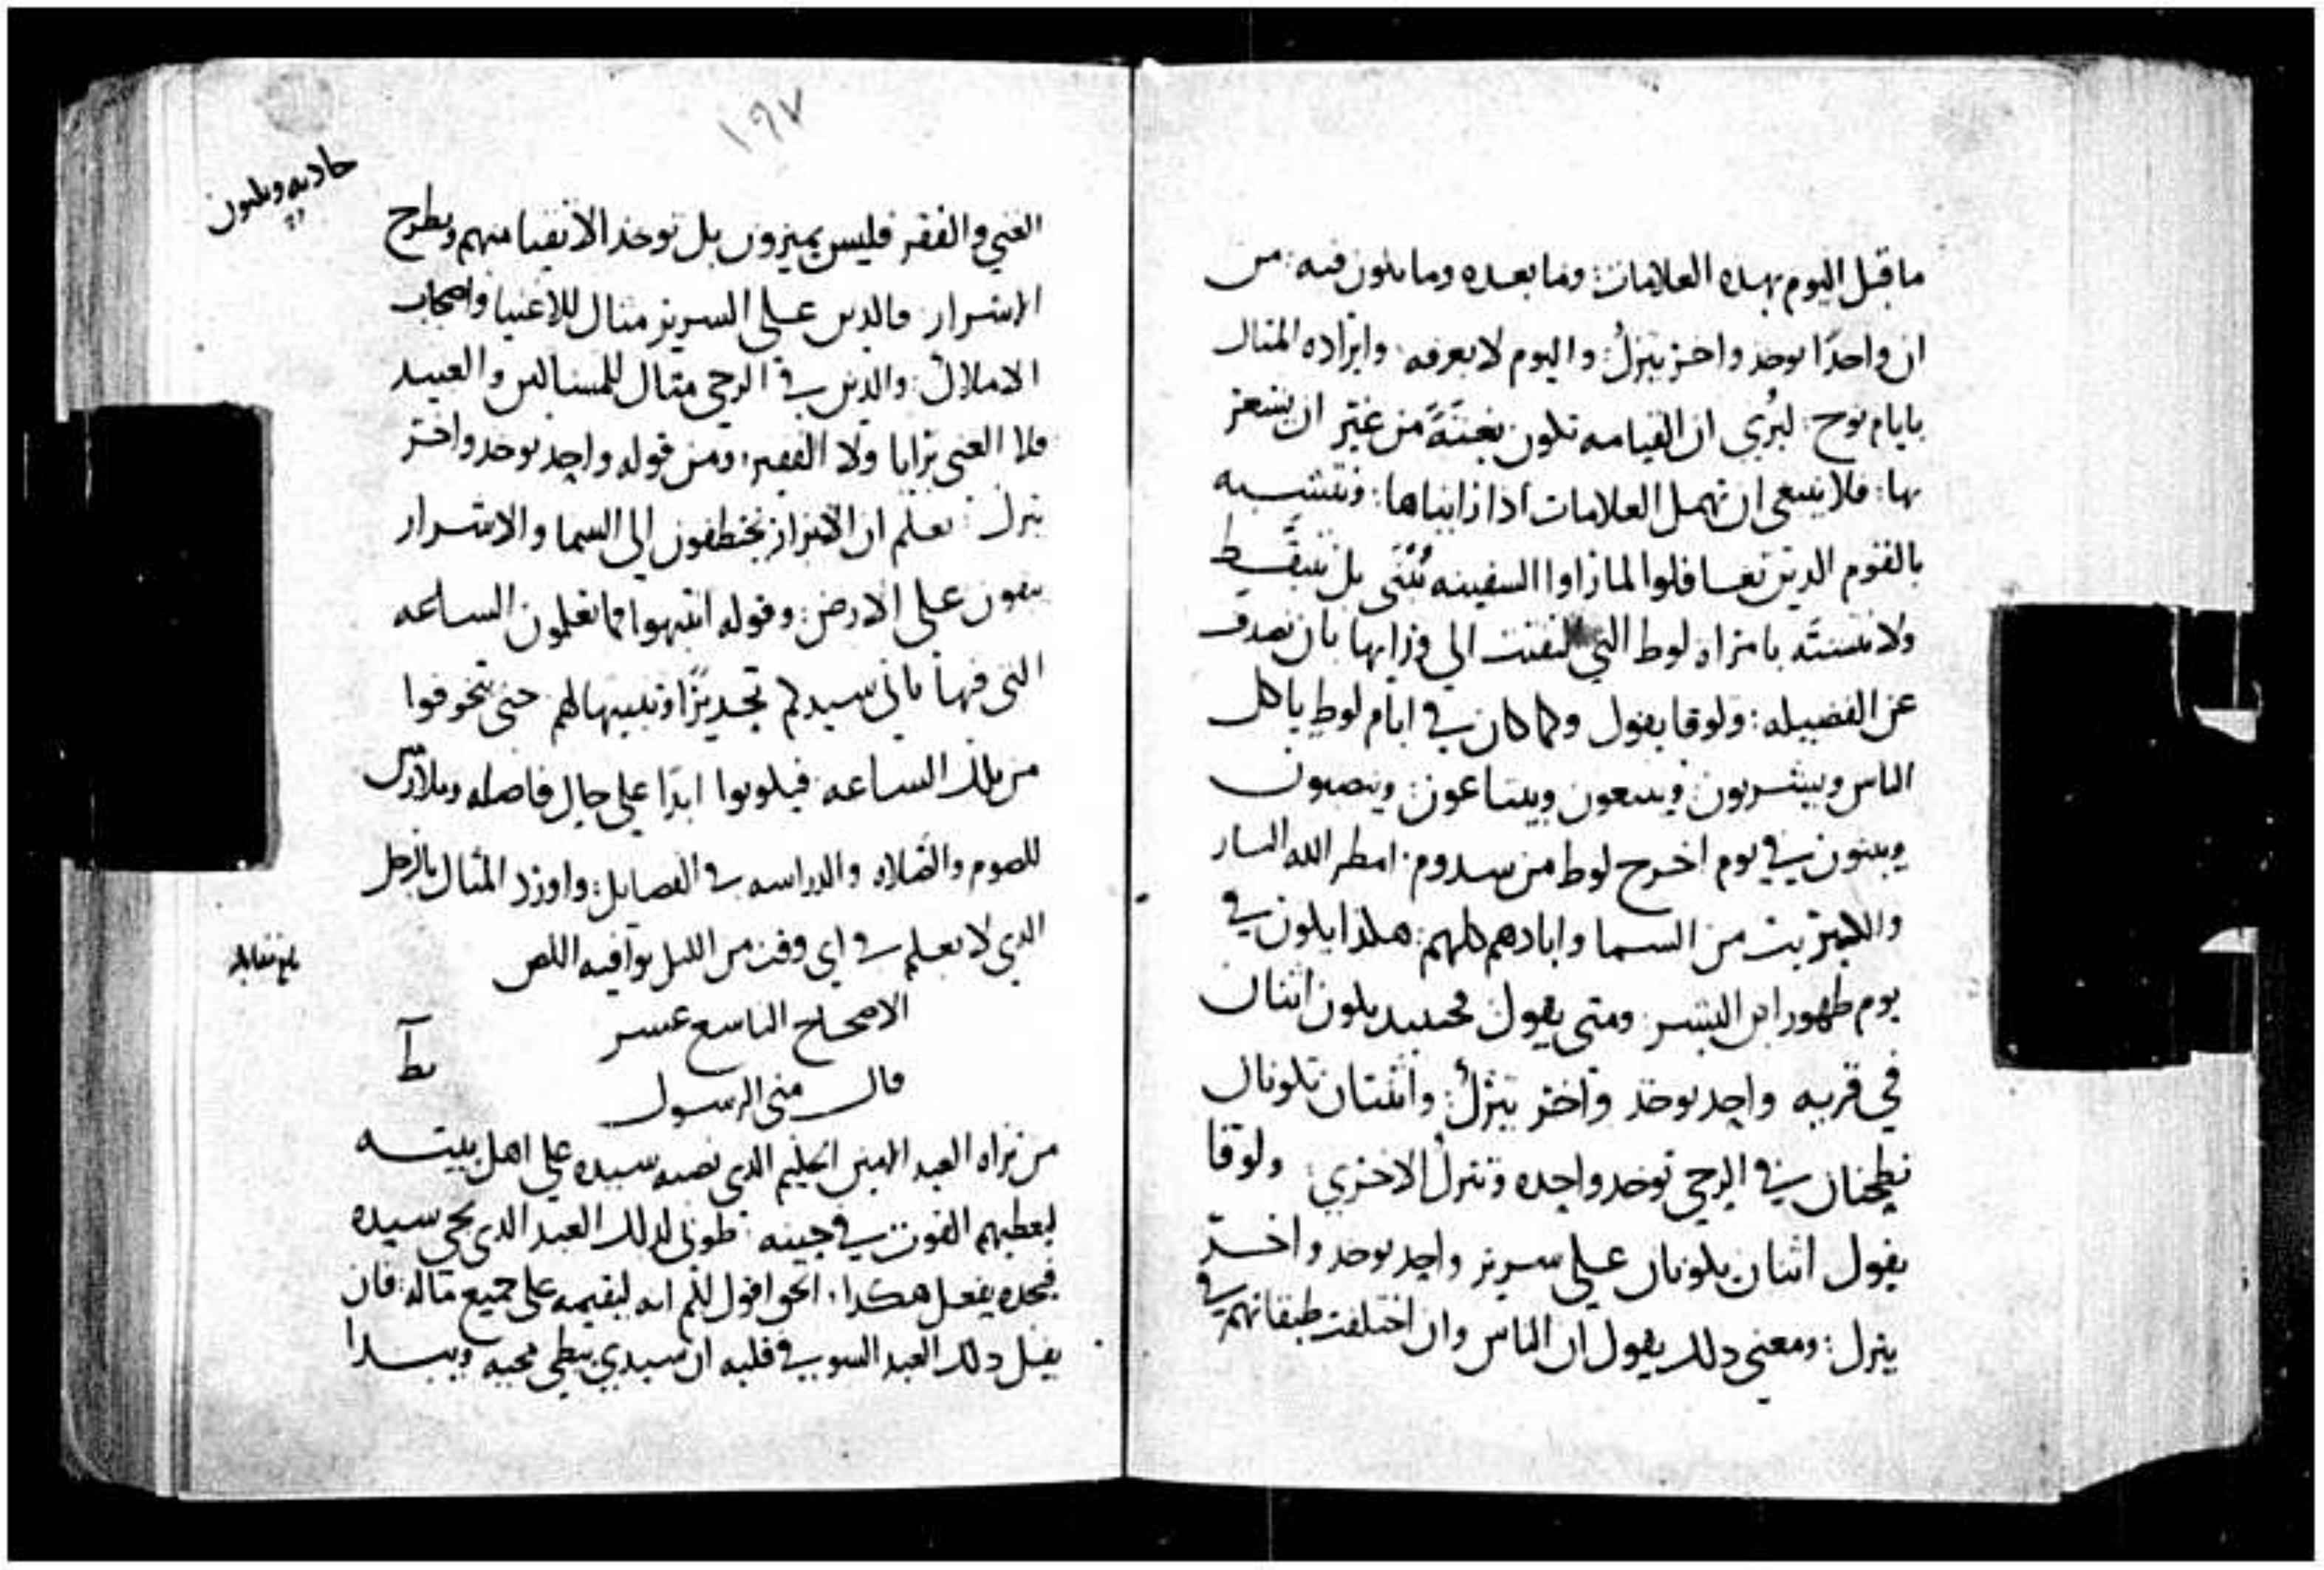 ما قبل اليوم بهذه العلامات: وما بعده وما يكون فيه: من
ان واحدًا يوخذ واخر يترك: واليوم لا يعرفه: وايراده المثال
بايام نوح: ليُري ان القيامه تكون بغتةً من غير ان يشعر
بها: فلا ينبغي ان نهمل العلامات اذا رايناها: ونتشبه
بالقوم الدين تغافلوا لما راوا السفينه تُبنى بل نتيقظ
ولا نتشبَّه بامراه لوط التي التفتت الي ورايها بان نصدف
عن الفضيله: ولوقا يقول وكما كان في ايام لوط ياكل
الناس ويشربون ويبيعون ويبتاعون وينصبون
ويبنون في يوم اخرج لوط من سدوم: امطر الله النار
والكبريت من السما وابادهم كلهم: هكذا يكون في
يوم ظهور ابن البشر ومتى يقول فحينيد يكون اثنان
في قريه واحد يوخذ واخر يترك: واثنتان تكونان
تطحنان في الرحي توخد واحده وتترك الاخري: ولوقا
يقول اثنان يكونان علي سرير واحد يوخد واخر
يترك: ومعني دلك يقول ان الناس وان اختلفت طبقاتهم في
١٩٧
الغني والفقر فليس يميزون بل توخذ الاتقيا منهم ويطرح
الاشرار: فالدين علي السرير مثال للاغنيا واصحاب
الاملاك: والدين في الرحي مثال للمساكين والعبيد
فلا الغني يرابا ولا الفقير: ومن قوله واحد يوخد واخر
يترك: نعلم ان الابرار يختطفون الي السما والاشرار
يبقون علي الارض: وقوله انتبهوا فما تعلمون الساعه
التي فيها ياتي سيدكم تحديرًا وتنبيهًا لهم حتى يتخوفوا
من تلك الساعه فيكونوا ابدًا علي حال فاضله وملازمين
للصوم والصلاه والدراسه في الفضايل: واورد المثال بالرجل
الدي لا يعلم في اي وقت من الليل يوافيه اللص
بلغ مقابله
الاصحاح التاسع عشر
يط
قال متى الرسول
من تراه العبد الامين الحليم الدي نصبه سيده علي اهل بيته
ليعطيهم القوت في حينه: طوبى لدلك العبد الدي يجي سيده
فيجده يفعل هكدا: الحق اقول لكم انه ليقيمه علي جميع ماله: فان
يقل دلك العبد السو في قلبه ان سيدي يبطي مجيه ويبدا